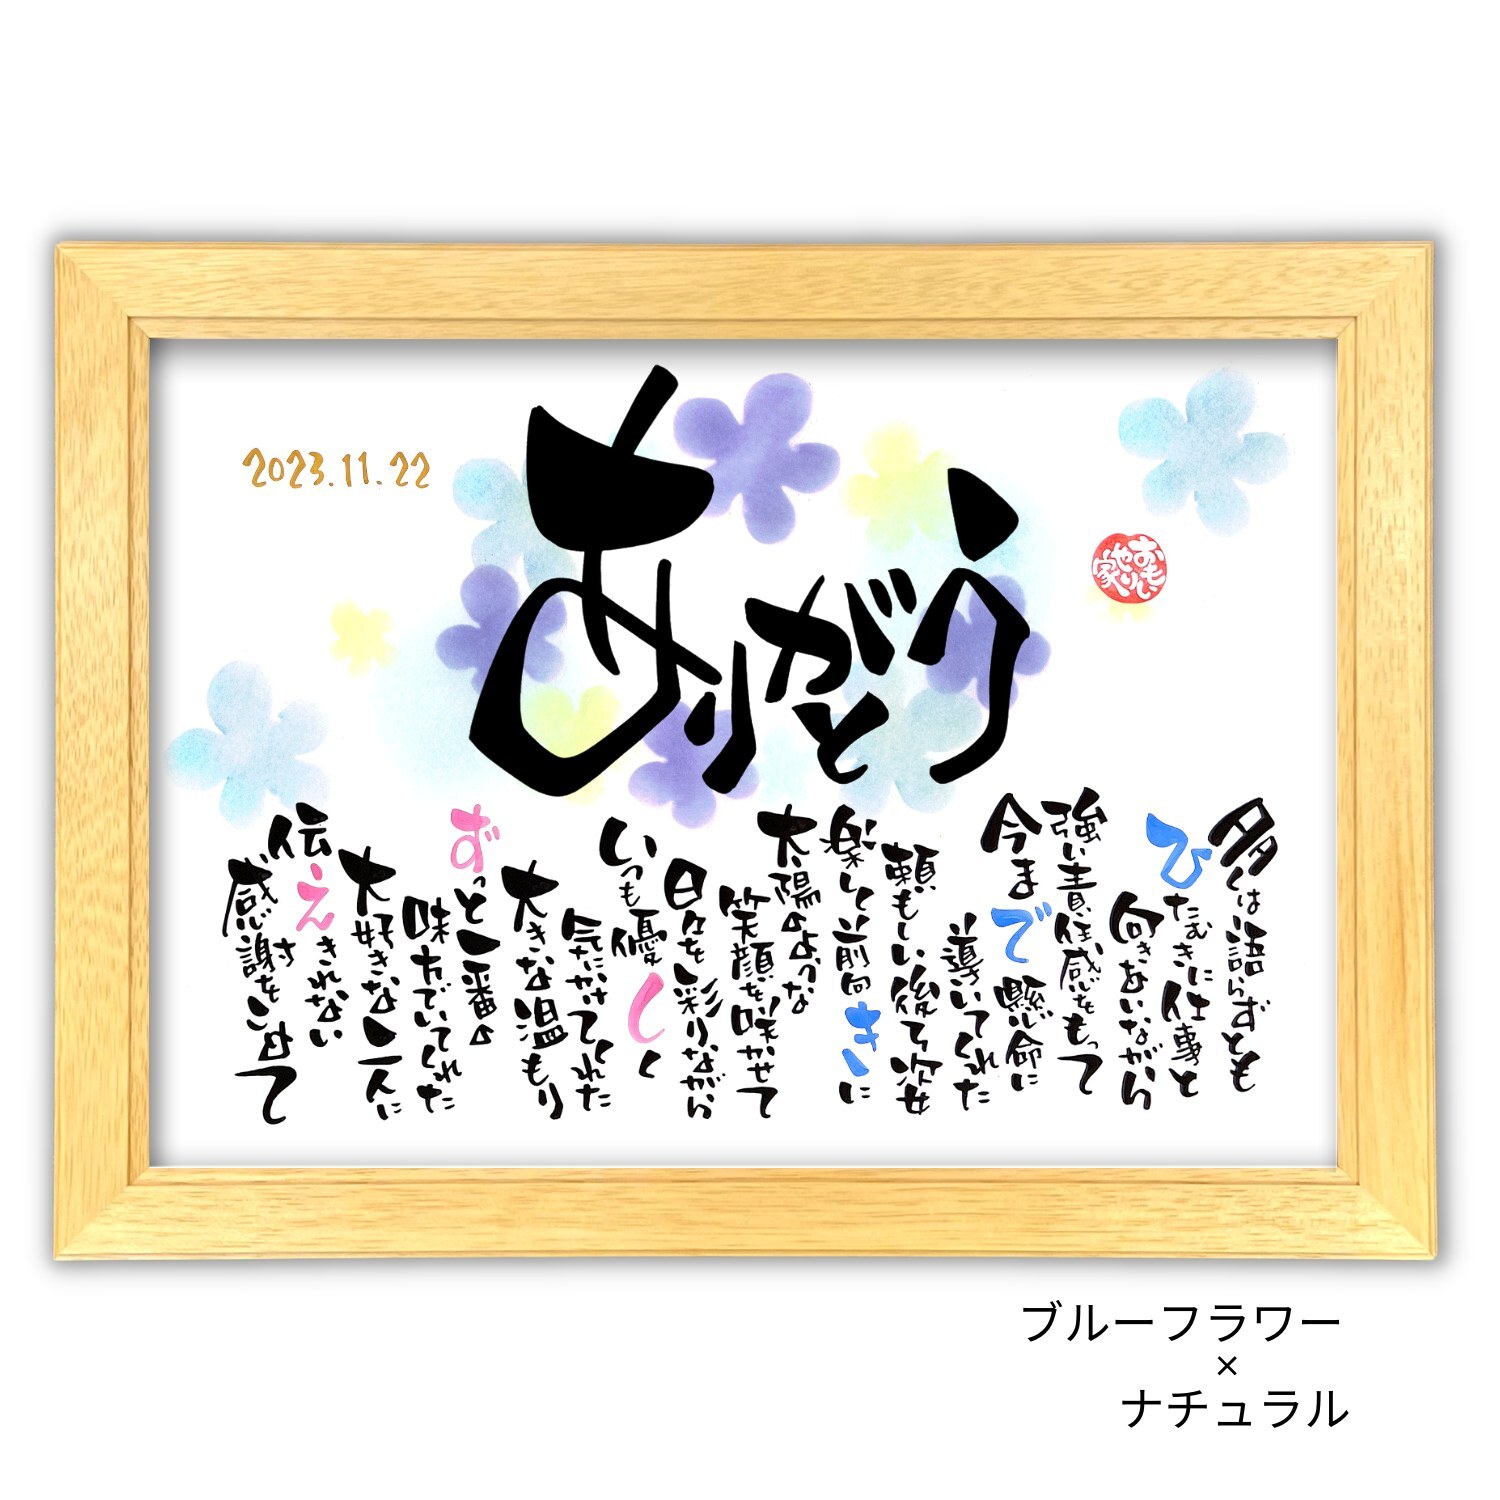 2023.11.22
ありがとう
おもい
やりい
家
多くは語らずとも
ひたむきに仕事と
向きあいながら
強い責任感をもって
今まで懸命に
導いてくれた
頼もしい後ろ姿
楽しく前向きに
太陽のような
笑顔を咲かせて
日々を彩りながら
いつも優しく
気にかけてくれた
大きな温もり
ずっと一番の
味方でいてくれた
大好きな二人に
伝えきれない
感謝をこめて
ブルーフラワー
×
ナチュラル